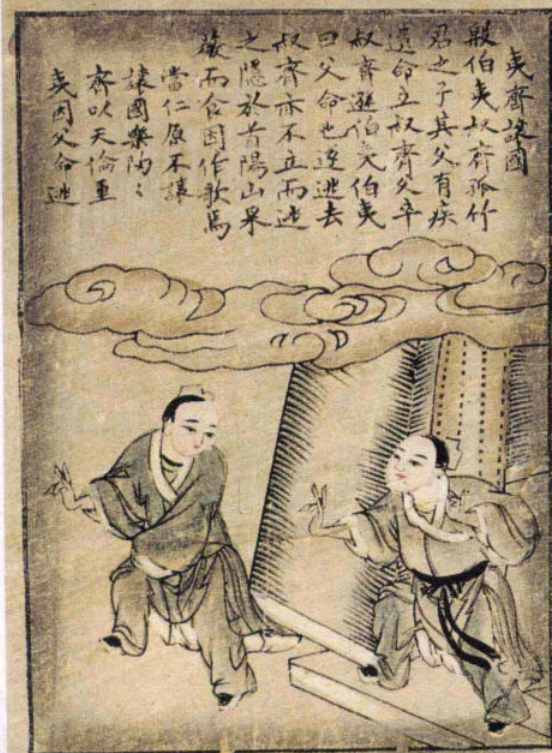 夷齊讓國
殷伯夷叔齊孤竹
君之子其父有疾
遺命立叔齊父卒
叔齊遜伯夷伯夷
曰父命也遂逃去
叔齊亦不立而逃
之隱於首陽山采
薇而食因作歌焉
當仁原不讓
讓國樂陶〻
齊以天倫重
夷因父命逃